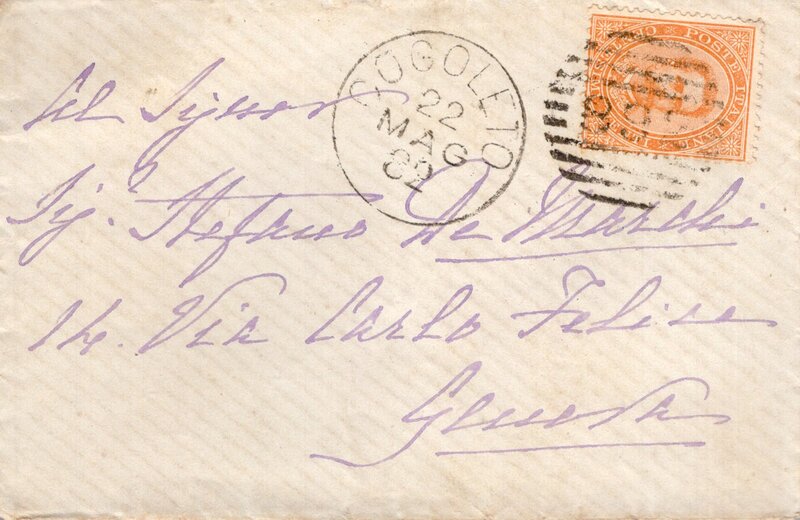 COGOLETO
22
MAG
82
POSTE ITALIANE
Al Signor
Sig. Stefano De Marchi
14. Via Carlo Felice
Genova